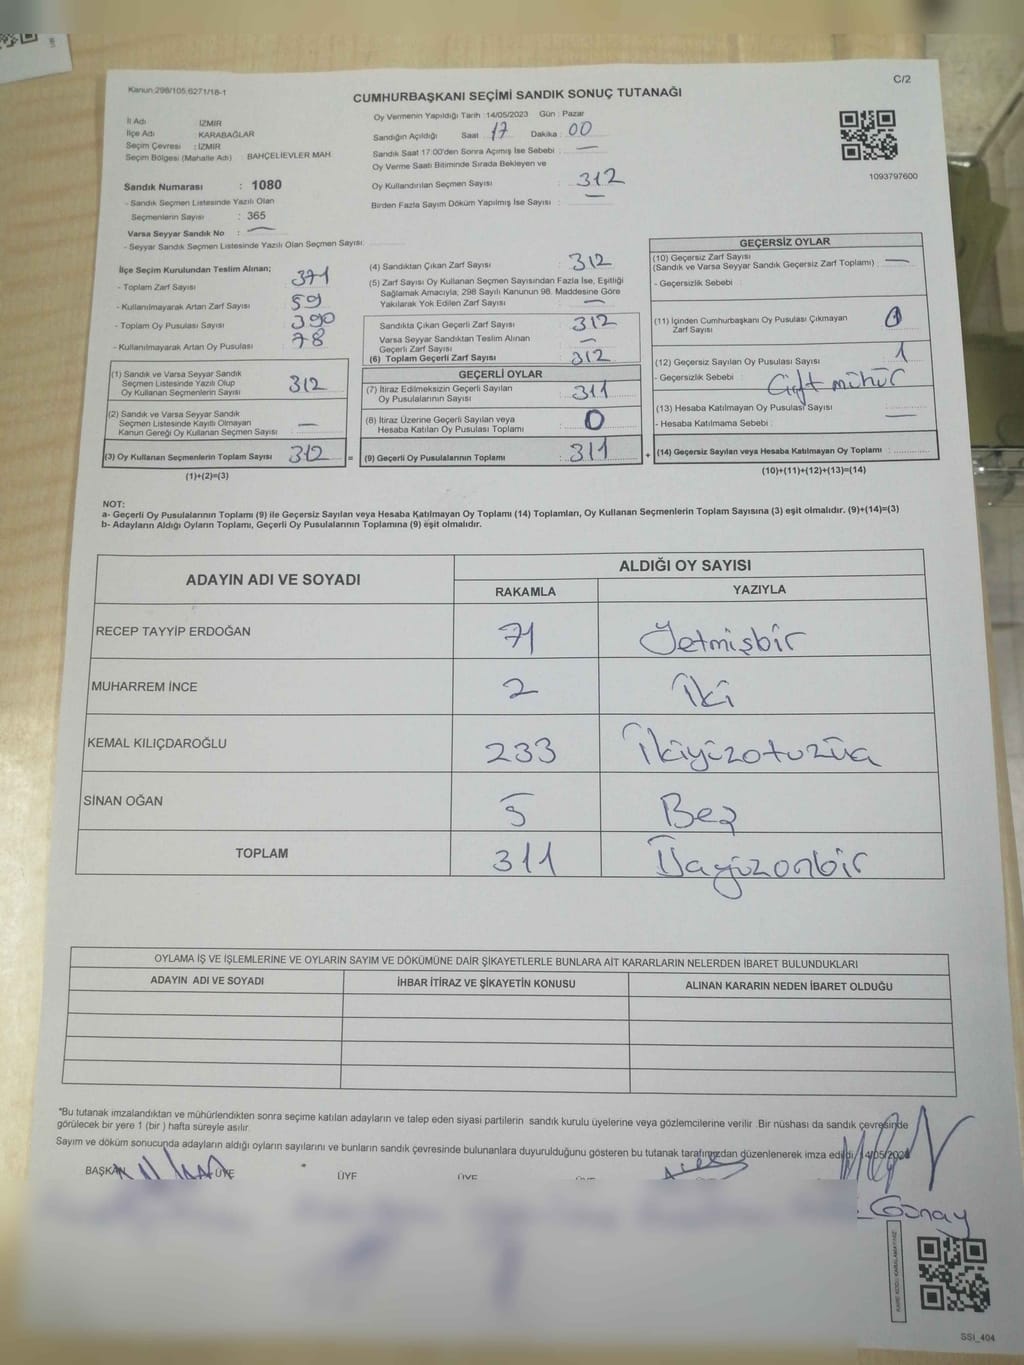 Kanun:298/105,6271/18-1
C/2
CUMHURBAŞKANI SEÇİMİ SANDIK SONUÇ TUTANAĞI
İl Adı İZMİR
İlçe Adı KARABAĞLAR
Seçim Çevresi : İZMİR
Seçim Bölgesi (Mahalle Adı) : BAHÇELİEVLER MAH
Sandık Numarası : 1080
- Sandık Seçmen Listesinde Yazılı Olan
Seçmenlerin Sayısı : 365
Varsa Seyyar Sandık No : —
- Seyyar Sandık Seçmen Listesinde Yazılı Olan Seçmen Sayısı
Oy Vermenin Yapıldığı Tarih :14/05/2023 Gün : Pazar
Sandığın Açıldığı Saat 17 Dakika 00
Sandık Saat 17:00'den Sonra Açımış İse Sebebi : —
Oy Verme Saati Bitiminde Sırada Bekleyen ve
Oy Kullandırılan Seçmen Sayısı : 312
Birden Fazla Sayım Döküm Yapılmış İse Sayısı : —
1093797600
İlçe Seçim Kurulundan Teslim Alınan;
- Toplam Zarf Sayısı : 371
- Kullanılmayarak Artan Zarf Sayısı : 59
- Toplam Oy Pusulası Sayısı : 390
- Kullanılmayarak Artan Oy Pusulası : 78
(1) Sandık ve Varsa Seyyar Sandık
Seçmen Listesinde Yazılı Olup
Oy Kullanan Seçmenlerin Sayısı : 312
(2) Sandık ve Varsa Seyyar Sandık
Seçmen Listesinde Kayıtlı Olmayan
Kanun Gereği Oy Kullanan Seçmen Sayısı —
(3) Oy Kullanan Seçmenlerin Toplam Sayısı 312 =
(1)+(2)=(3)
(4) Sandıktan Çıkan Zarf Sayısı : 312
(5) Zarf Sayısı Oy Kullanan Seçmen Sayısından Fazla İse, Eşitliği
Sağlamak Amacıyla; 298 Sayılı Kanunun 98. Maddesine Göre
Yakılarak Yok Edilen Zarf Sayısı : —
Sandıkta Çıkan Geçerli Zarf Sayısı : 312
Varsa Seyyar Sandıktan Teslim Alınan
Geçerli Zarf Sayısı : —
(6) Toplam Geçerli Zarf Sayısı : 312
GEÇERLİ OYLAR
(7) İtiraz Edilmeksizin Geçerli Sayılan
Oy Pusulalarının Sayısı : 311
(8) İtiraz Üzerine Geçerli Sayılan veya
Hesaba Katılan Oy Pusulası Toplamı : 0
(9) Geçerli Oy Pusulalarının Toplamı : 311 +
GEÇERSİZ OYLAR
(10) Geçersiz Zarf Sayısı
(Sandık ve Varsa Seyyar Sandık Geçersiz Zarf Toplamı) : —
- Geçersizlik Sebebi :
(11) İçinden Cumhurbaşkanı Oy Pusulası Çıkmayan
Zarf Sayısı : 0
(12) Geçersiz Sayılan Oy Pusulası Sayısı : 1
- Geçersizlik Sebebi : Çift mühür
(13) Hesaba Katılmayan Oy Pusulası Sayısı —
- Hesaba Katılmama Sebebi :
(14) Geçersiz Sayılan veya Hesaba Katılmayan Oy Toplamı :
(10)+(11)+(12)+(13)=(14)
NOT:
a- Geçerli Oy Pusulalarının Toplamı (9) ile Geçersiz Sayılan veya Hesaba Katılmayan Oy Toplamı (14) Toplamları, Oy Kullanan Seçmenlerin Toplam Sayısına (3) eşit olmalıdır. (9)+(14)=(3)
b- Adayların Aldığı Oyların Toplamı, Geçerli Oy Pusulalarının Toplamına (9) eşit olmalıdır.
ADAYIN ADI VE SOYADI
ALDIĞI OY SAYISI
RAKAMLA YAZIYLA
RECEP TAYYİP ERDOĞAN 71 Yetmişbir
MUHARREM İNCE 2 İki
KEMAL KILIÇDAROĞLU 233 İkiyüzotuzüç
SİNAN OĞAN 5 Beş
TOPLAM 311 Üçyüzonbir
OYLAMA İŞ VE İŞLEMLERİNE VE OYLARIN SAYIM VE DÖKÜMÜNE DAİR ŞİKAYETLERLE BUNLARA AİT KARARLARIN NELERDEN İBARET BULUNDUKLARI
ADAYIN ADI VE SOYADI İHBAR İTİRAZ VE ŞİKAYETİN KONUSU ALINAN KARARIN NEDEN İBARET OLDUĞU
*Bu tutanak imzalandıktan ve mühürlendikten sonra seçime katılan adayların ve talep eden siyasi partilerin sandık kurulu üyelerine veya gözlemcilerine verilir .Bir nüshası da sandık çevresinde
görülecek bir yere 1 (bir ) hafta süreyle asılır.
Sayım ve döküm sonucunda adayların aldığı oyların sayılarını ve bunların sandık çevresinde bulunanlara duyurulduğunu gösteren bu tutanak tarafımızdan düzenlenerek imza edildi
BAŞKAN ÜYE ÜYE ÜYE
Günay
SSİ_404